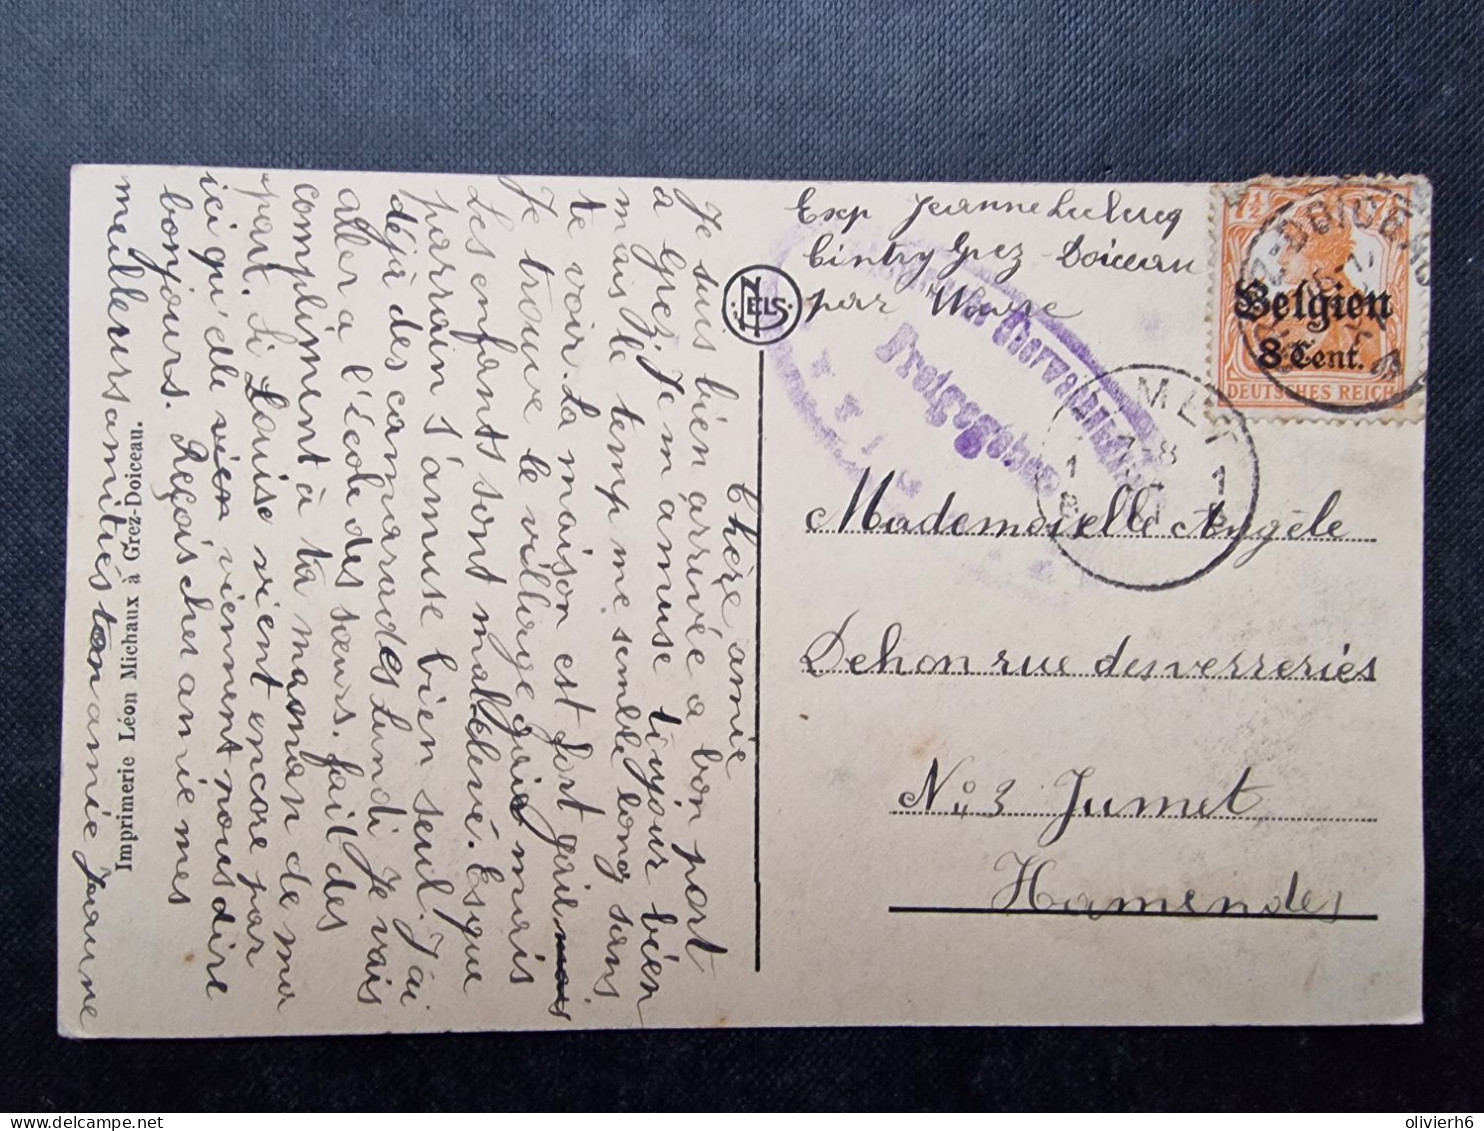 Chère amie
Je suis bien arrivée a bon port
a Grez. Je m'amuse toujour bien
mais le temp me semble long sans
te voir. La maison est fort gaie mais
Je trouve le village gaie mais
Les enfants sont mal elevé. Esque
parrain s'amuse bien seul. J'ai
déjà des camarades Lundi Je vais
aller a l'école des sœurs. fait des
compliment à ta maman de ma
part. Si Louise vient encore par
ici qu'elle vien viennent nous dire
bonjours. Reçois cher amie mes
meilleurs amitiés ton amie Jeanne
Imprimerie Léon Michaux à Grez-Doiceau.
NELS
Exp Jeanne
Cintry Grez Doiceau
par Wavre
Geprüft
7½
Belgien
8 Cent.
DEUTSCHES REICH
Mademoiselle Angèle
Dehon rue des verreriés
No 3 Jumet
Hamendes
olivierh6